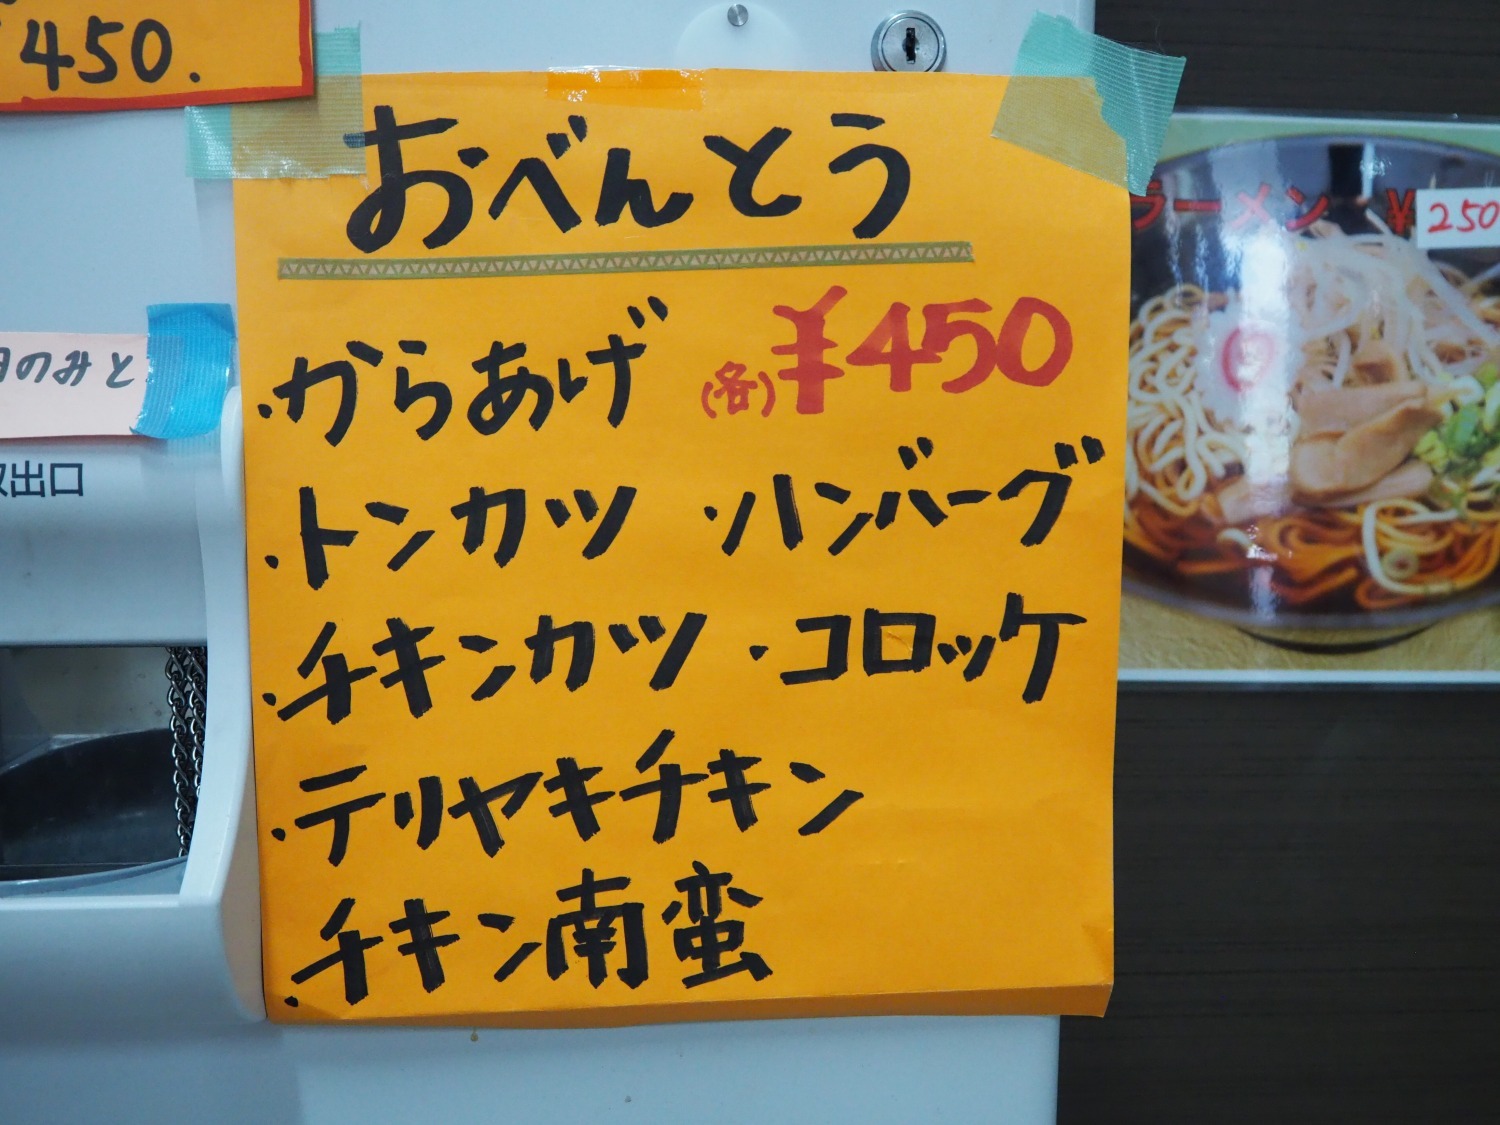 450.
おべんとう
・からあげ (各)¥450
・トンカツ ・ハンバーグ
・チキンカツ ・コロッケ
・テリヤキチキン
・チキン南蛮
ラーメン ¥250
のみと
出口